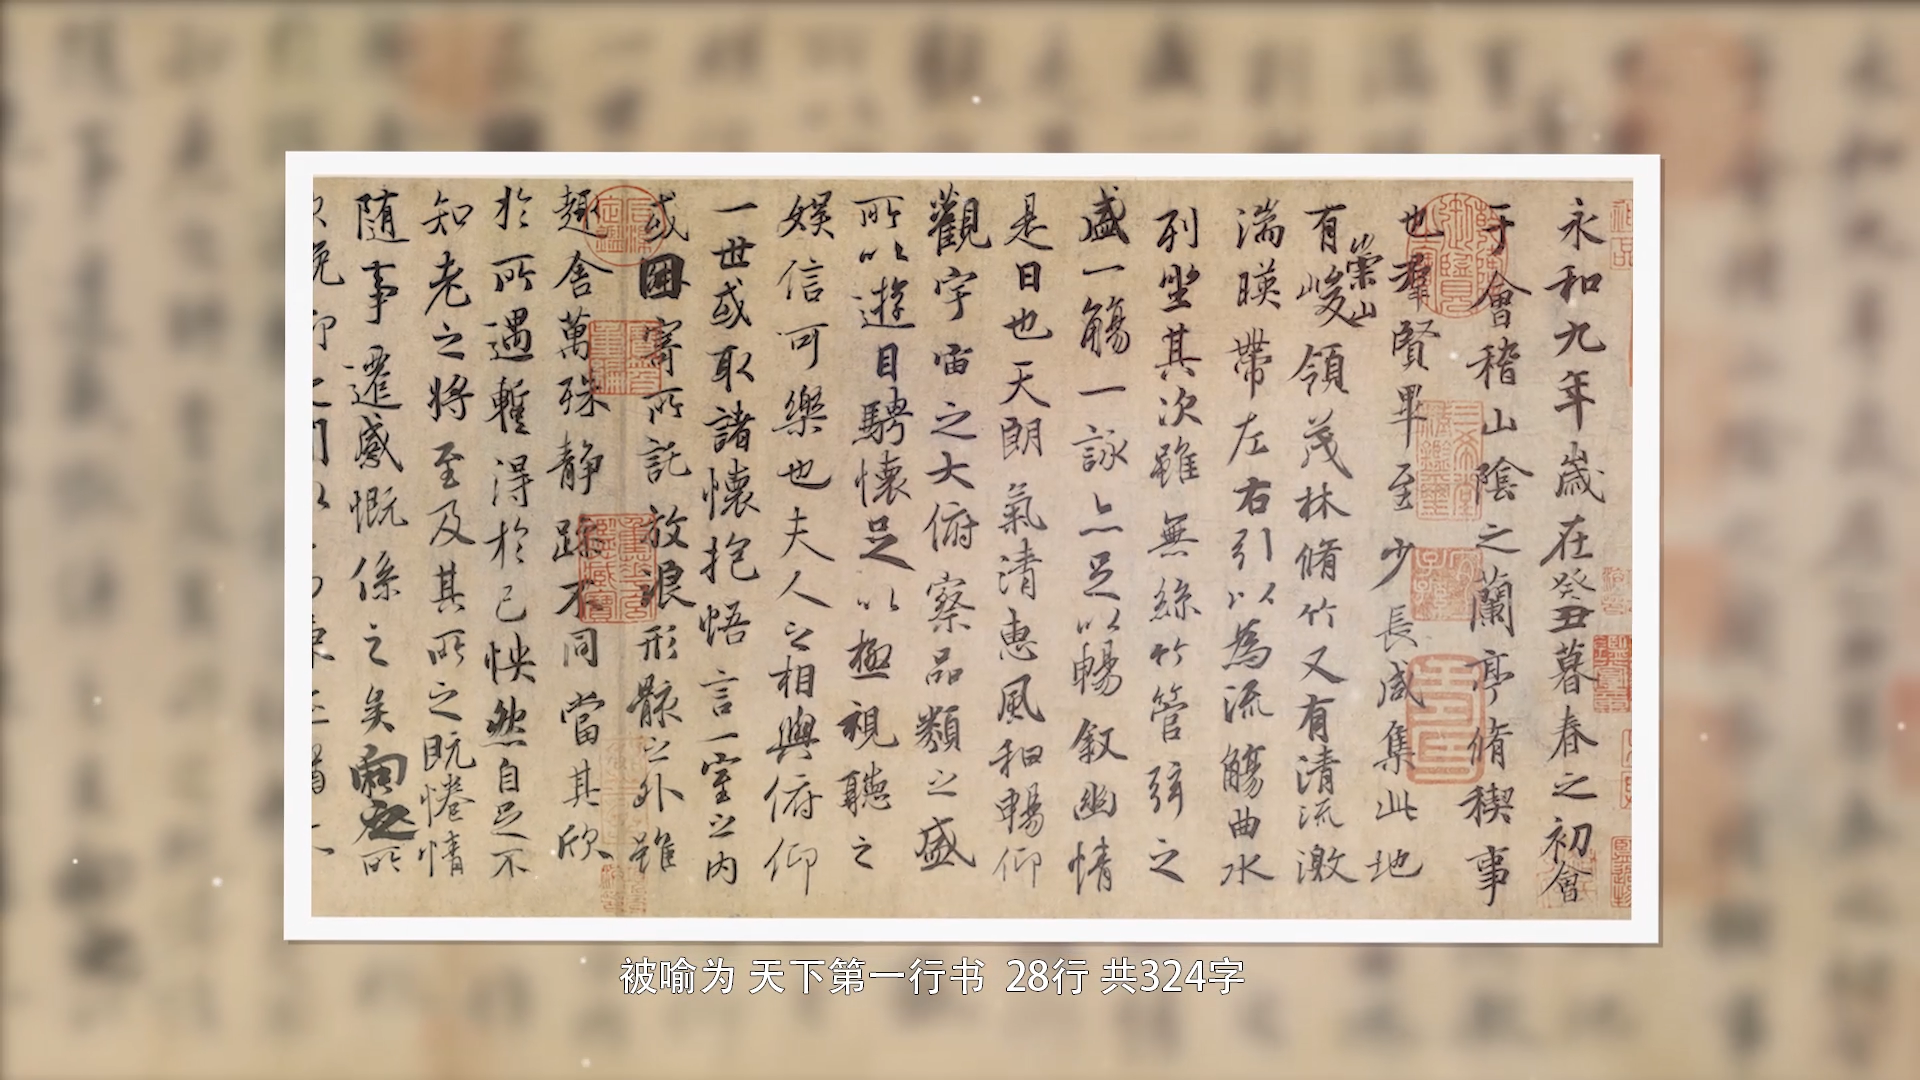 永和九年歲在癸丑暮春之初會
于會稽山陰之蘭亭脩稧事
也羣賢畢至少長咸集此地
有崇山峻領茂林脩竹又有清流激
湍暎帶左右引以為流觴曲水
列坐其次雖無絲竹管弦之
盛一觴一詠亦足以暢敘幽情
是日也天朗氣清惠風和暢仰
觀宇宙之大俯察品類之盛
所以遊目騁懷足以極視聽之
娛信可樂也夫人之相與俯仰
一世或取諸懷抱悟言一室之內
或因寄所託放浪形骸之外雖
趣舍萬殊靜躁不同當其欣
於所遇暫得於己怏然自足不
知老之將至及其所之既惓情
隨事遷感慨係之矣向之所
被喻为 天下第一行书 28行 共324字